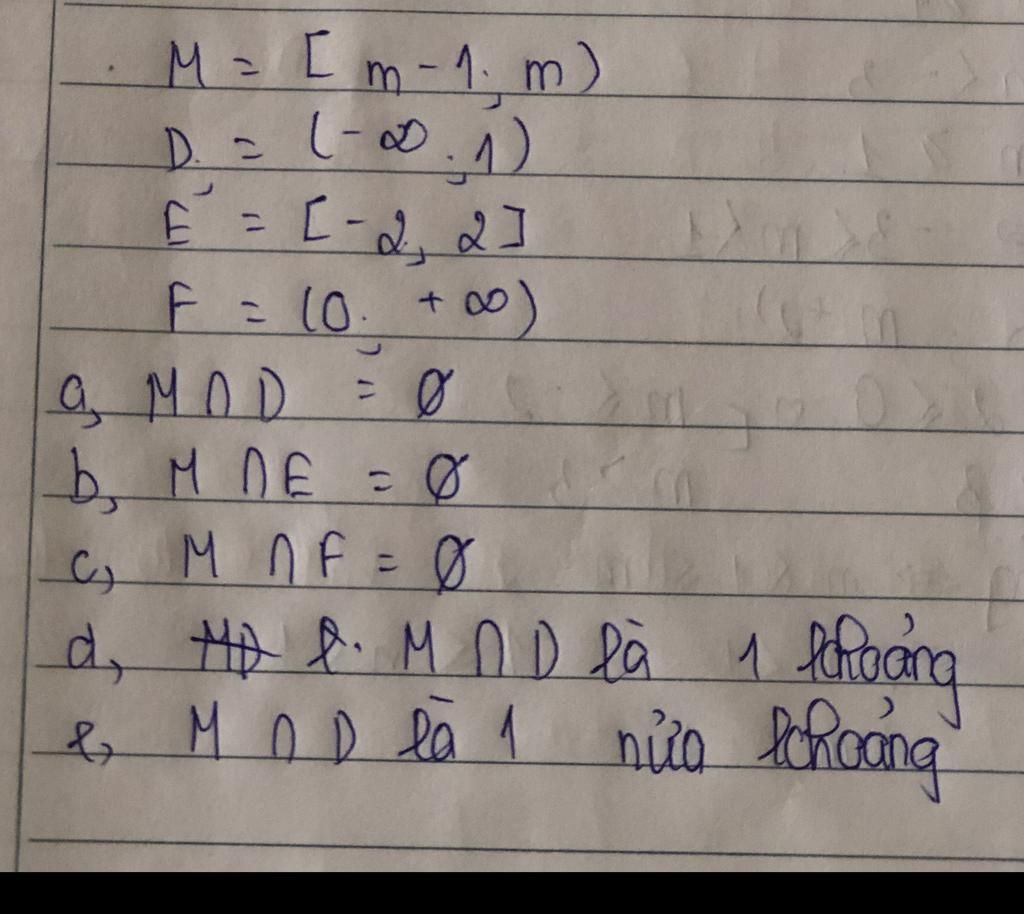 M = [ m - 1; m )
D = (-∞ ; 1)
E = [-2; 2]
F = (0; +∞)
a, M ∩ D = Ø
b, M ∩ E = Ø
c, M ∩ F = Ø
d, M ∩ D là 1 khoảng
e, M ∩ D là 1 nửa khoảng